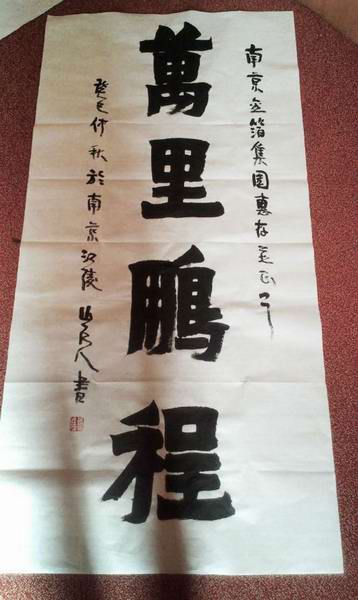 南京金箔集團惠存并正之
萬里鵬程
癸巳仲秋於南京江陵 山人書